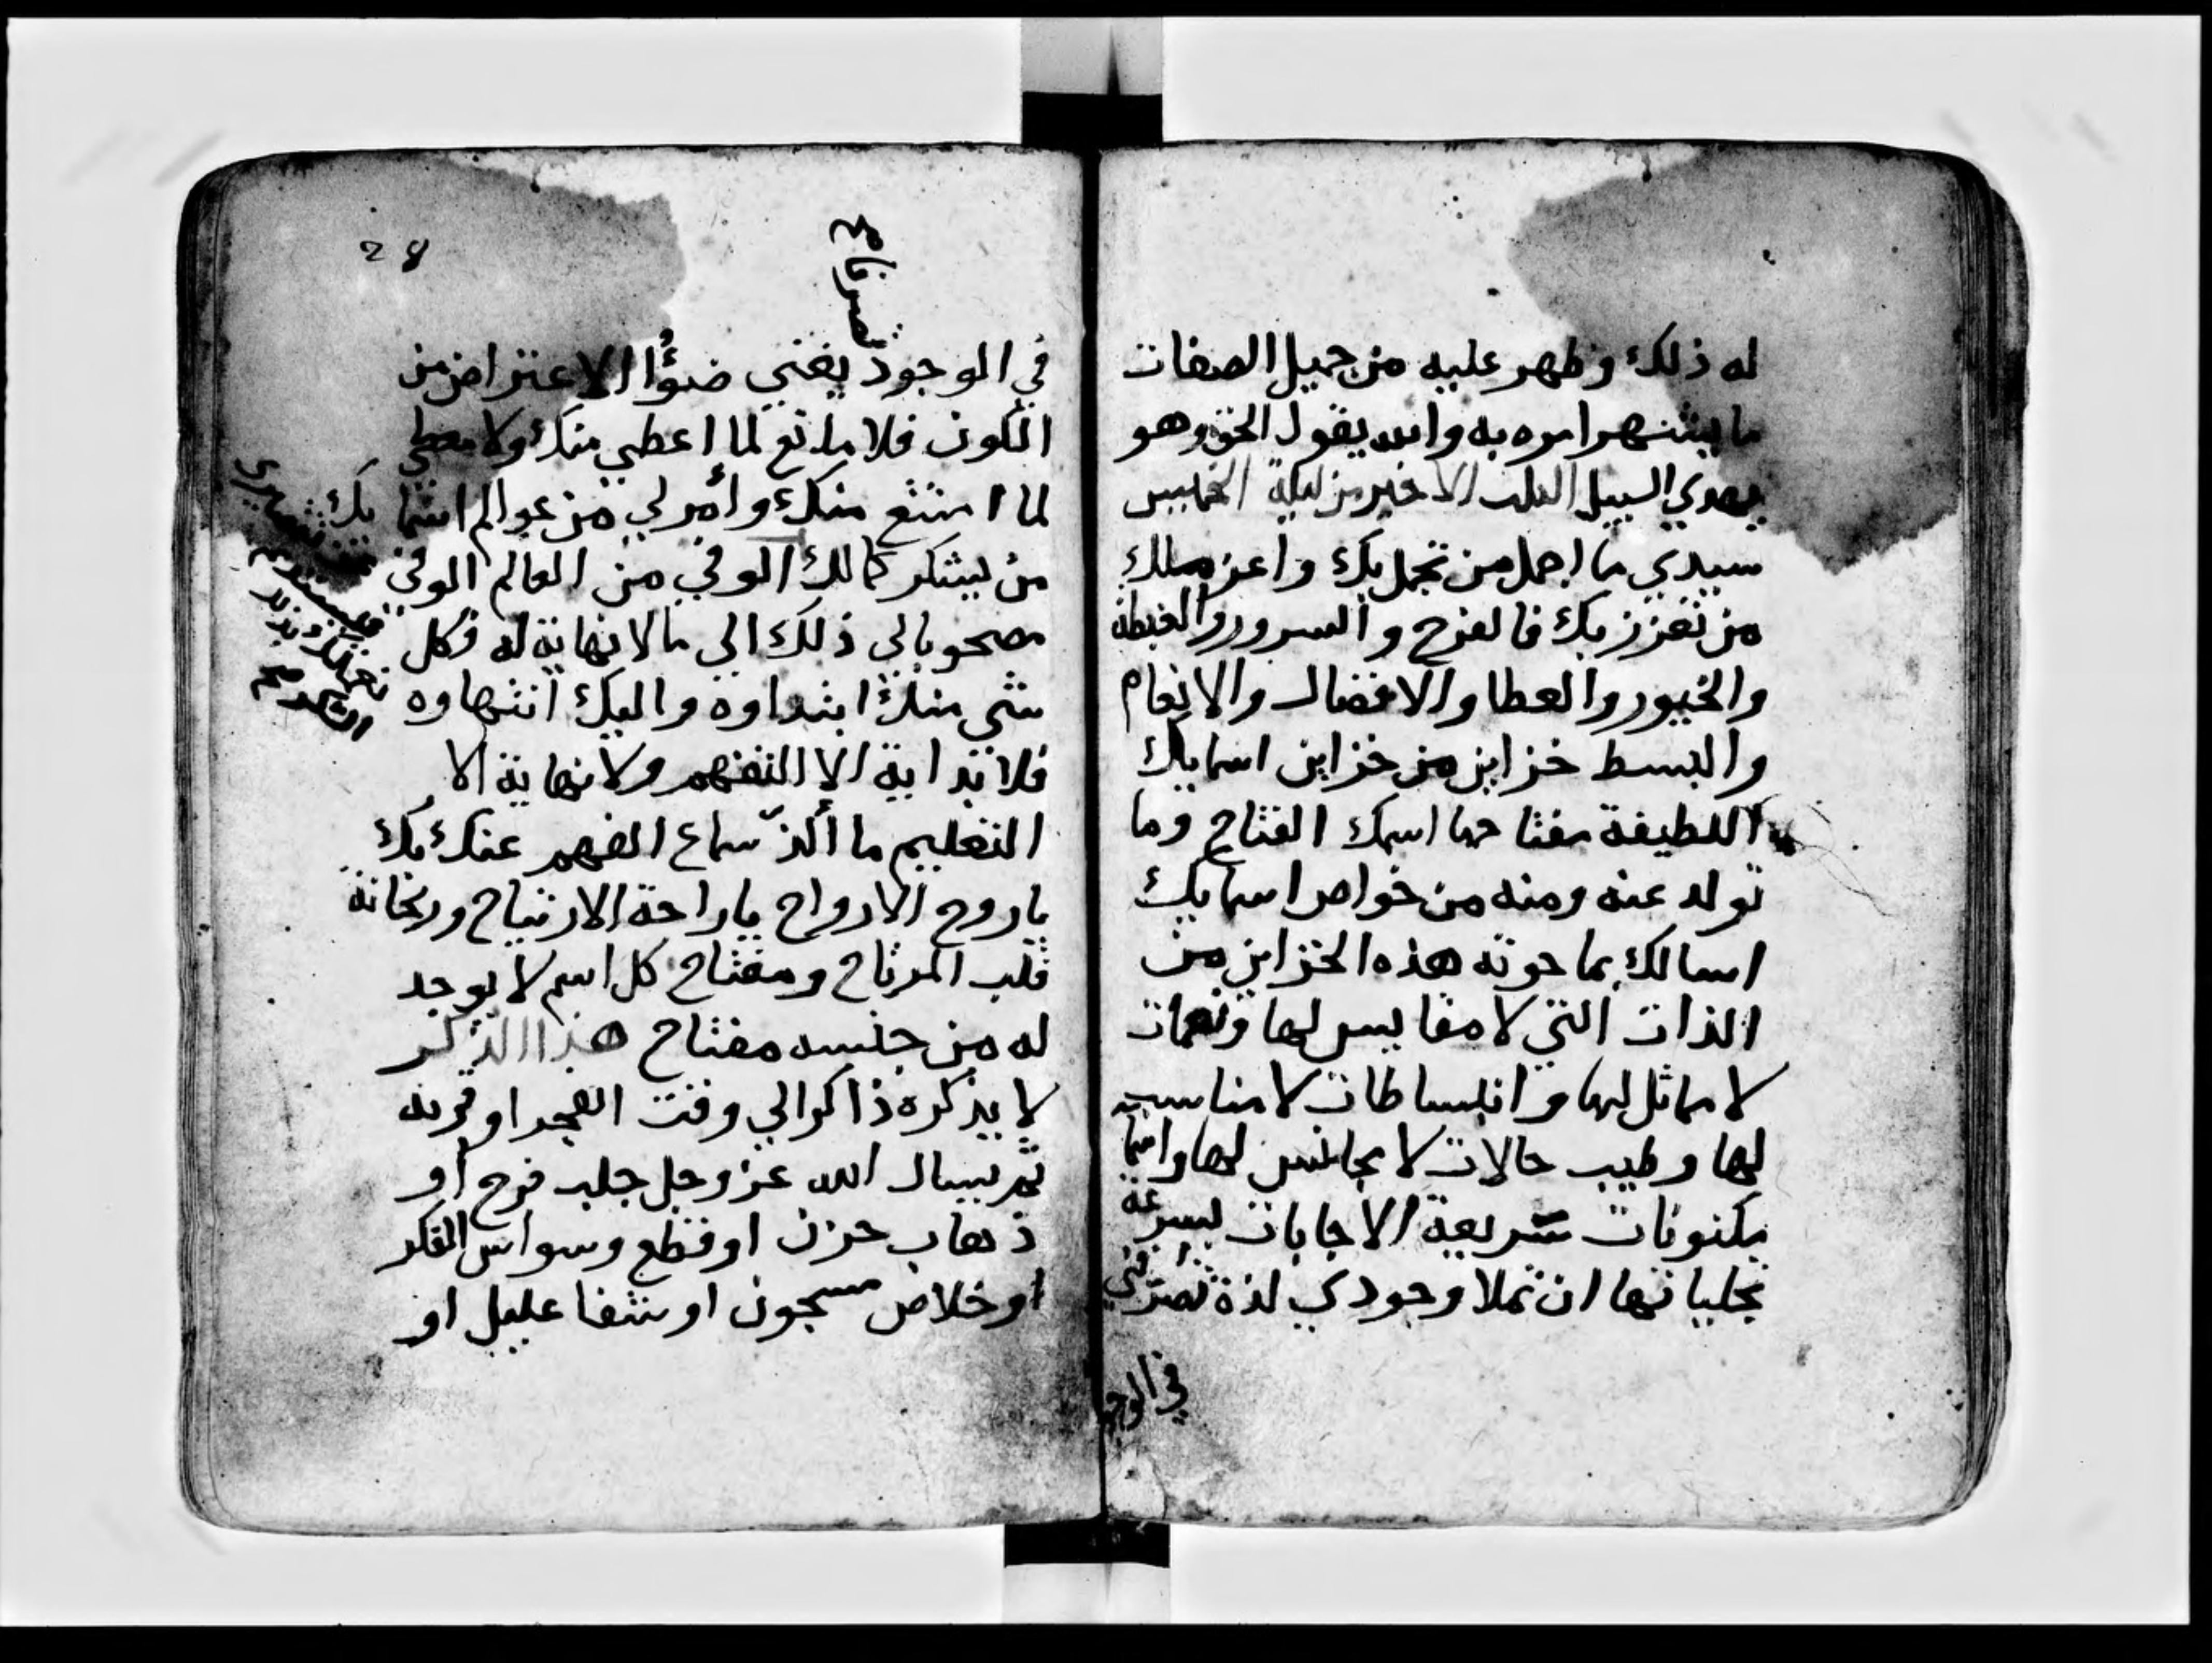 له ذلك وظهر عليه من جميل الصفات
ما يشتهر امره به والله يقول الحق وهو
يهدي السبيل الثلث الاخير من ليلة الخميس
سيدي ما اجمل من تجمل بك واعز مملك
من تعزز بك فالفرح والسرور والغبطة
والخيور والعطا والافضال والانعام
والبسط خزاين من خزاين اسمايك
اللطيفة مفتاحها اسمك الفتاح وما
تولد عنه ومنه من خواص اسمايك
اسالك بما حوته هذه الخزاين من
الذات التي لا مقايس لها ونعمات
لا مماثل لها وانبساطات لا مناسب
لها وطيب حالات لا مجانس لها واسما
مكنونات سريعة الاجابات بسرعة
تجلياتها ان تملا وجودي لذة تصرفني
في الوجو
28
تصرفا ع
في الوجود يغني ضوؤا الاعتراض من
الكون فلا مانع لما اعطي منك ولا معطي
لما امتنع منك وأمر لي من عوالم اسما يك
من يشكر كمالك الوفي من العالم الوفي
مصحوبا لي ذلك الي ما لا نهاية له فكل
شي منك ابتداوه واليك انتهاوه
فلا بداية الا التفهم ولا نهاية الا
التعليم ما ألذ سماع الفهم عنك بك
يا روح الارواح يا راحة الارتياح وريحانة
قلب المرتاح ومفتاح كل اسم لا يوجد
له من جنسه مفتاح هذا الذكر
لا يذكره ذاكر الي وقت الفجر او قربه
ثم يسال الله عز وجل جلب فرح أو
ذهاب حزن او قطع وسواس الفكر
او خلاص مسجون او شفا عليل او